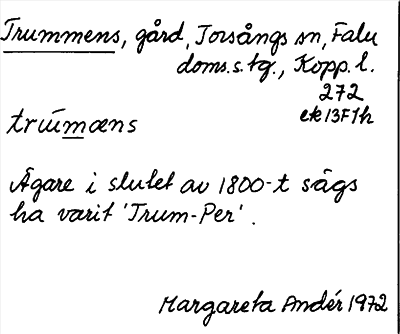 Trummens, gård, Torsångs sn, Falu
doms.s.tg., Kopp. l.
272
ek 13F1h
trúmæns
Ägare i slutet av 1800-t sägs
ha varit 'Trum-Per'.
Margareta Andér 1972